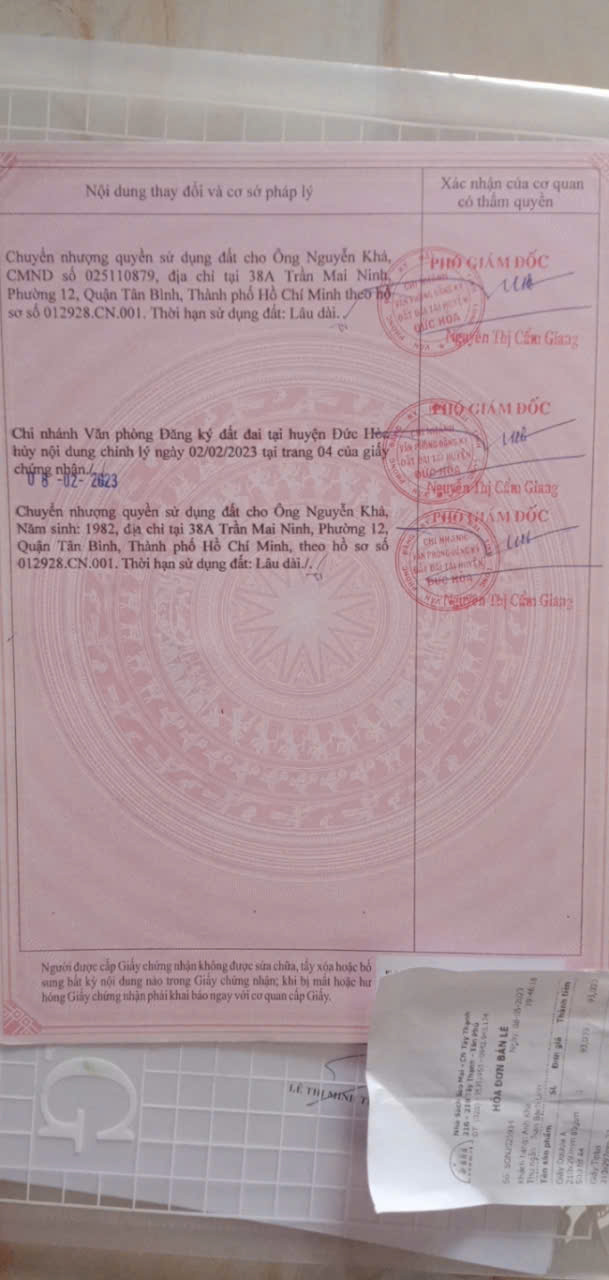 Nội dung thay đổi và cơ sở pháp lý
Xác nhận của cơ quan
có thẩm quyền
Chuyển nhượng quyền sử dụng đất cho Ông Nguyễn Khả,
CMND số 025110879, địa chỉ tại 38A Trần Mai Ninh,
Phường 12, Quận Tân Bình, Thành phố Hồ Chí Minh theo hồ
sơ số 012928.CN.001. Thời hạn sử dụng đất: Lâu dài.
PHÓ GIÁM ĐỐC
CHI NHÁNH
VĂN PHÒNG ĐĂNG KÝ
ĐẤT ĐAI TẠI HUYỆN
ĐỨC HÒA
Nguyễn Thị Cẩm Giang
Chi nhánh Văn phòng Đăng ký đất đai tại huyện Đức Hòa
hủy nội dung chỉnh lý ngày 02/02/2023 tại trang 04 của giấy
chứng nhận./.
08-02-2023
PHÓ GIÁM ĐỐC
CHI NHÁNH
VĂN PHÒNG ĐĂNG KÝ
ĐẤT ĐAI TẠI HUYỆN
ĐỨC HÒA
Nguyễn Thị Cẩm Giang
Chuyển nhượng quyền sử dụng đất cho Ông Nguyễn Khả,
Năm sinh: 1982, địa chỉ tại 38A Trần Mai Ninh, Phường 12,
Quận Tân Bình, Thành phố Hồ Chí Minh, theo hồ sơ số
012928.CN.001. Thời hạn sử dụng đất: Lâu dài./.
PHÓ GIÁM ĐỐC
CHI NHÁNH
VĂN PHÒNG ĐĂNG KÝ
ĐẤT ĐAI TẠI HUYỆN
ĐỨC HÒA
Nguyễn Thị Cẩm Giang
Người được cấp Giấy chứng nhận không được sửa chữa, tẩy xóa hoặc bổ
sung bất kỳ nội dung nào trong Giấy chứng nhận; khi bị mất hoặc hư
hỏng Giấy chứng nhận phải khai báo ngay với cơ quan cấp Giấy.
LÊ THỊ MINH T
Nhà Sách Sao Mai - CN Tây Thạnh
HÓA ĐƠN BÁN LẺ
Tên sản phẩm SL Đơn giá Thành tiền